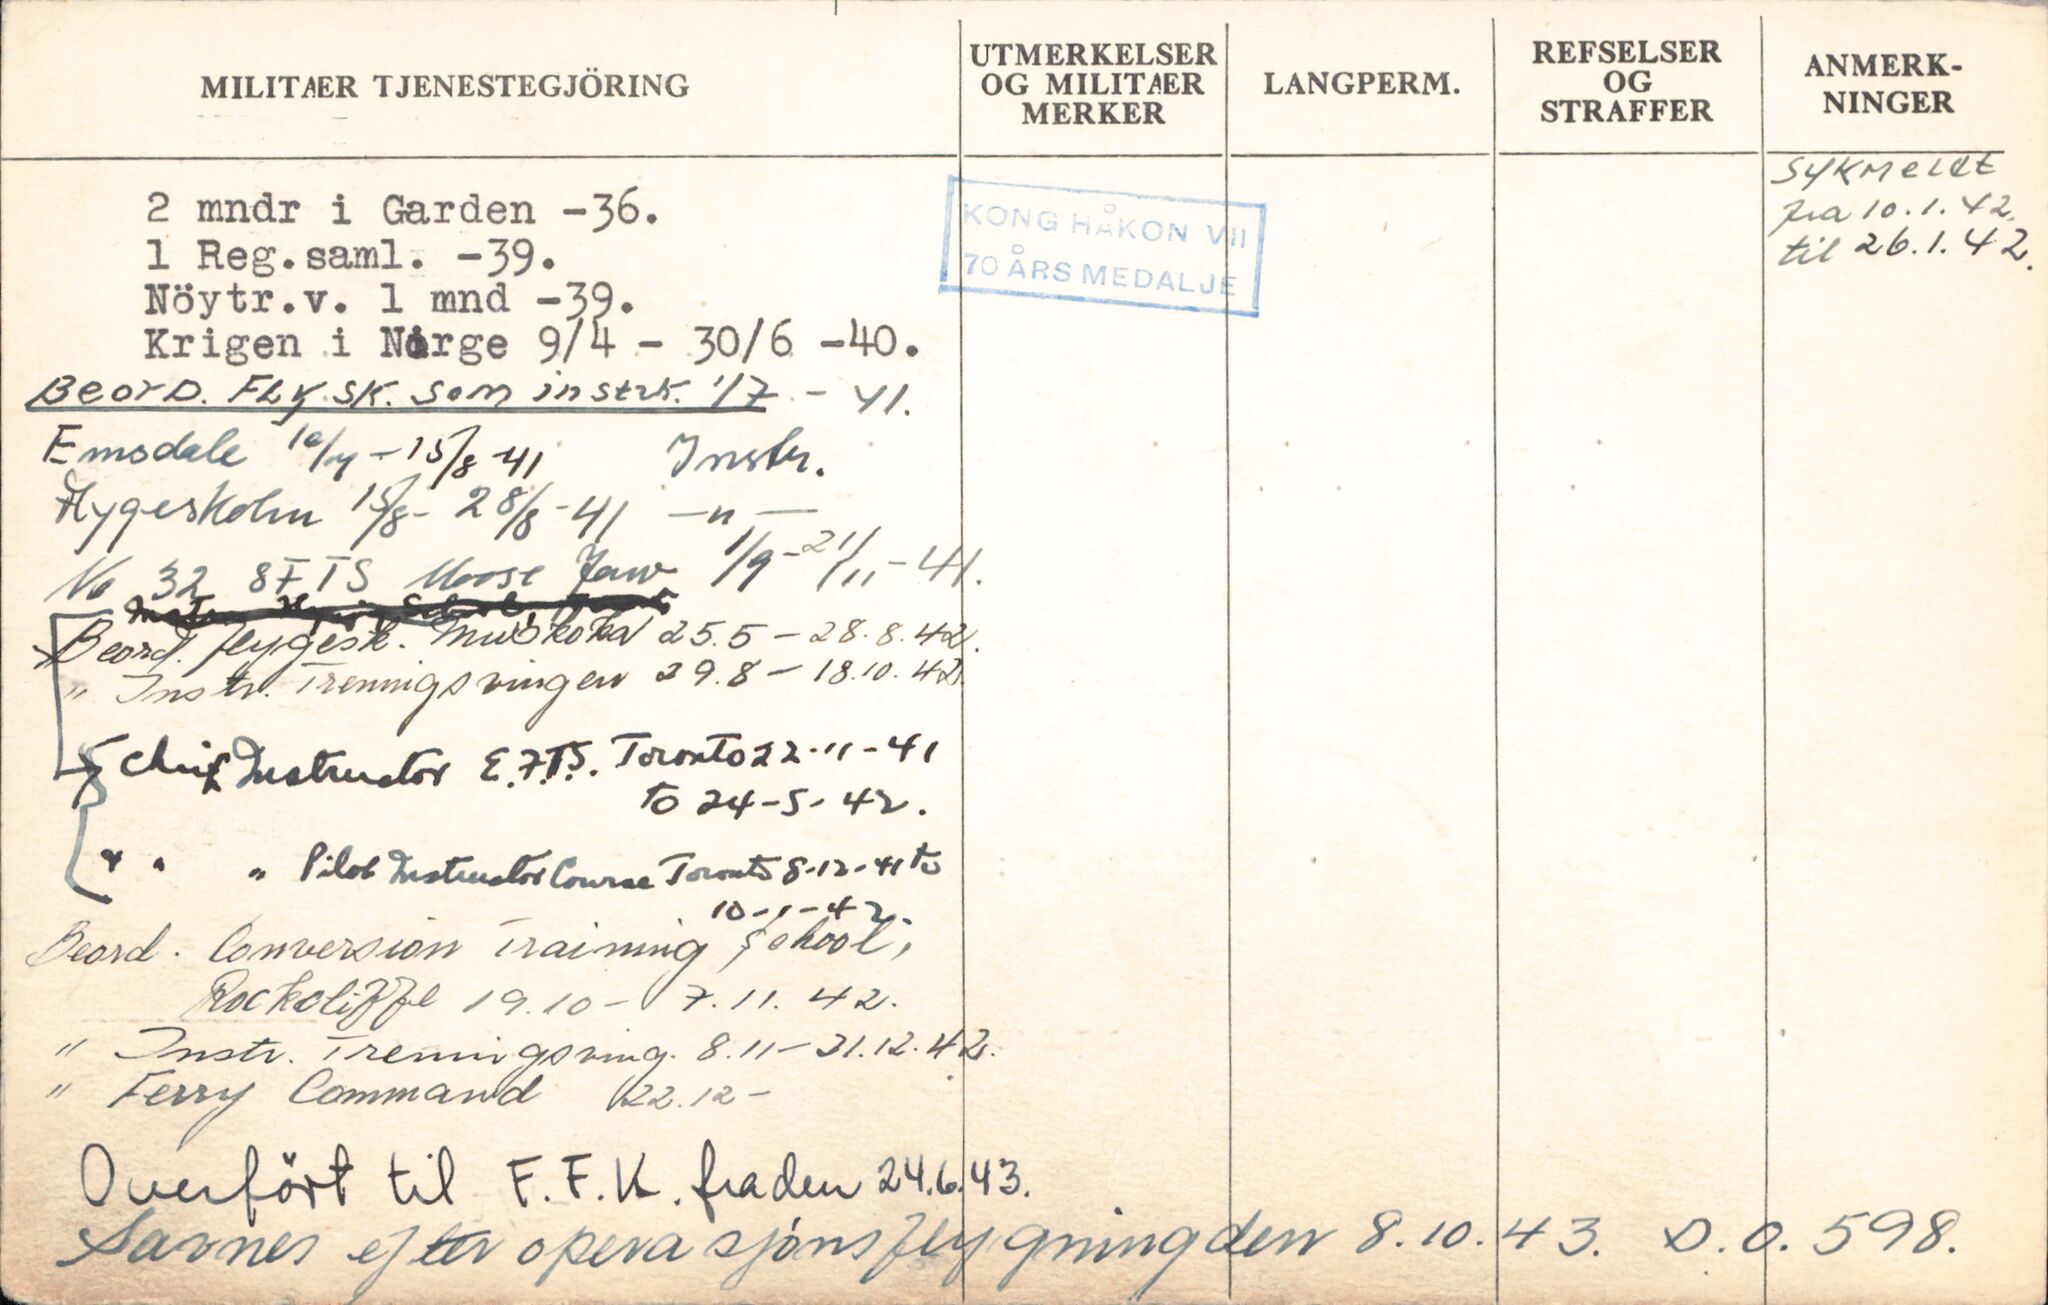 MILITÆR TJENESTEGJÖRING
UTMERKELSER
OG MILITÆR
MERKER
LANGPERM.
REFSELSER
OG
STRAFFER
ANMERK-
NINGER
2 mndr i Garden -36.
1 Reg.saml. -39.
Nöytr.v. 1 mnd -39.
Krigen i Norge 9/4 - 30/6 -40.
Beord. Fly sk. som instrk. 1/7 - 41.
Emsdale - 15/8 -41 Instr.
Flygeskolen 15/8 - 28/8 -41 —"—
No 32 SFTS Moose Jaw 1/9 - 21/11 - 41.
Beord. flygesk. Muskoka 25.5 - 28.8.42.
" Instr. Treningsvingen 29.8 - 18.10.42.
Chief Instructor E.F.T.S. Toronto 22-11-41
to 24-5-42.
" " " Pilot Instructor Course Toronto 8-12-41 to
10-1-42.
Beord. Conversion Training School,
Rockcliffe 19.10 - 7.11.42.
" Instr. Treningsving. 8.11 - 21.12.42.
" Ferry Command 22.12 -
Overfört til F.F.K. fra den 24.6.43.
Savnes efter operasjonsflygning den 8.10.43. D.O. 598.
KONG HÅKON VII
70 ÅRS MEDALJE
Sykmeldt
fra 10.1.42.
til 26.1.42.